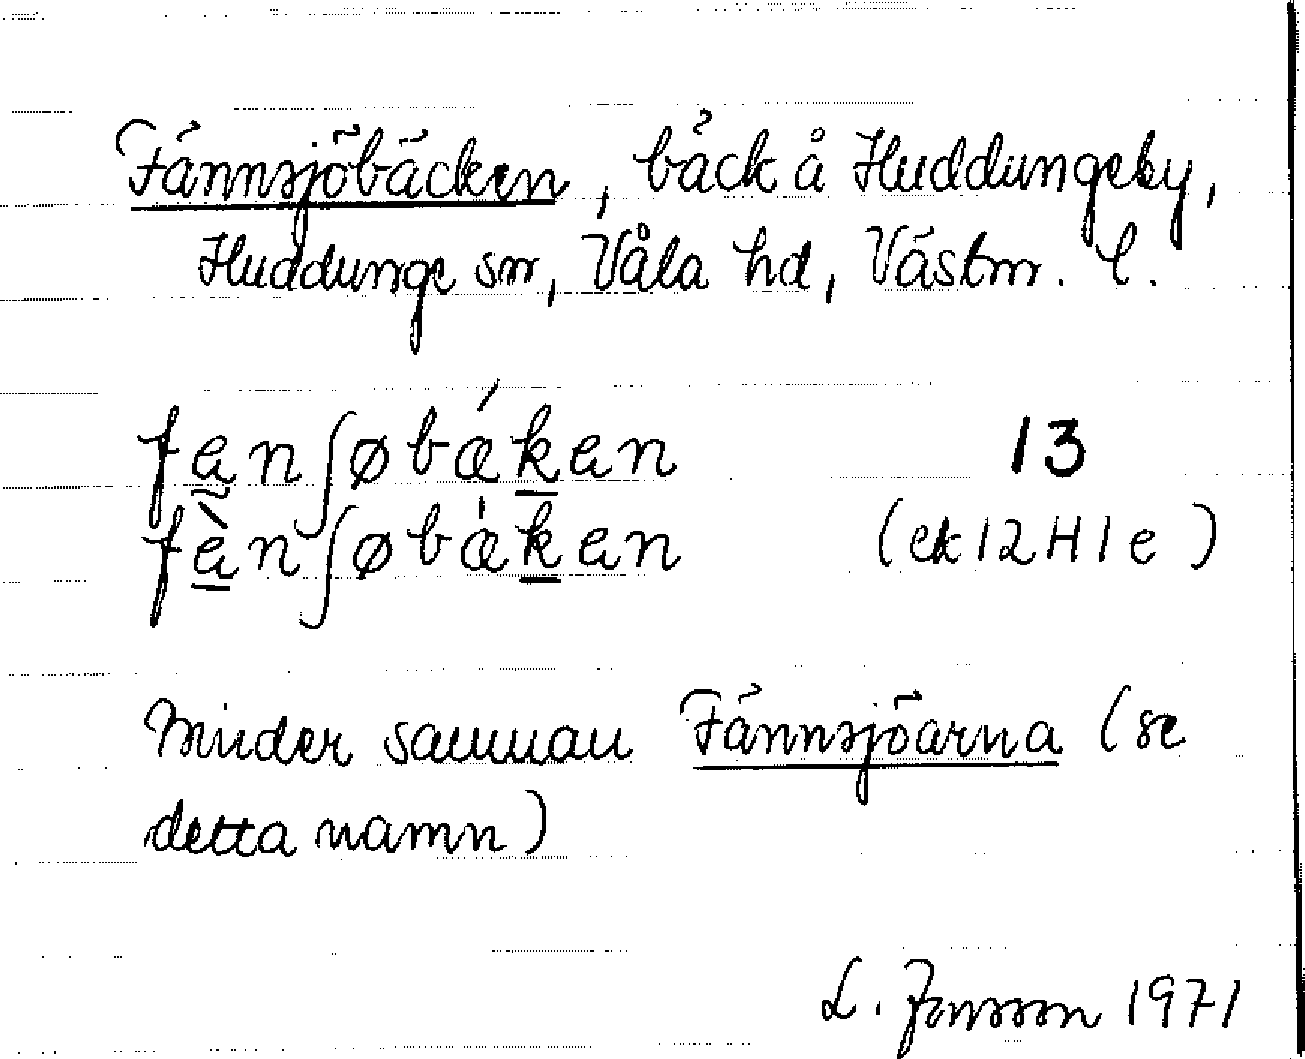 Fännsjöbäcken, bäck å Huddungeby,
Huddunge sn, Våla hd, Västm. l.
fa̰nʃøbákan 13
fànʃøbákan (ek 12H1e)
Binder samman Fännsjöarna (se
detta namn)
L. Jonsson 1971